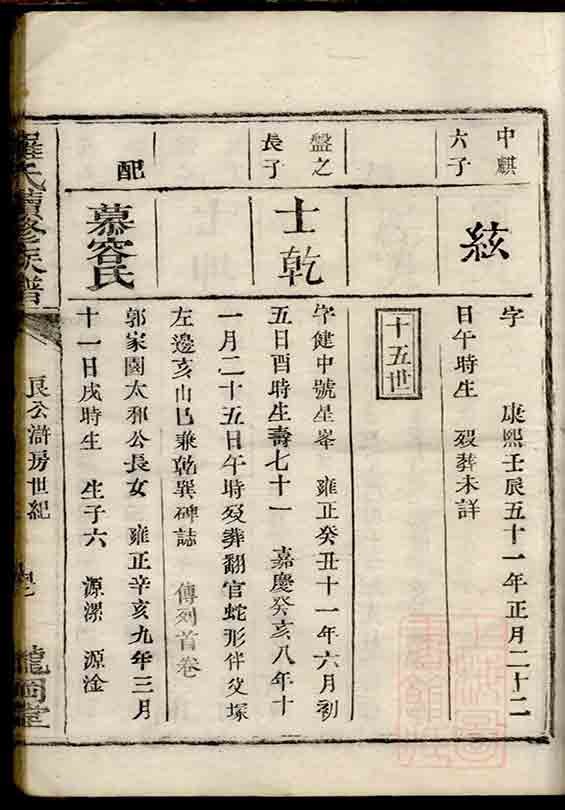 中麒
六子
絃
字　康熙壬辰五十一年正月二十二
日午時生　歿葬未詳
十五世
盤之
長子
士乾
字健中號星峯　雍正癸丑十一年六月初
五日酉時生壽七十一　嘉慶癸亥八年十
一月二十五日午時歿葬翻官蛇形伴父塚
左邊亥山巳兼乾巽碑誌　傳列首卷
配
慕容氏
郭家園太邪公長女　雍正辛亥九年三月
十一日戌時生　生子六　源漯　源淦
羅氏續修族譜
良公滸房世紀
龍岡堂
上海圖
書館